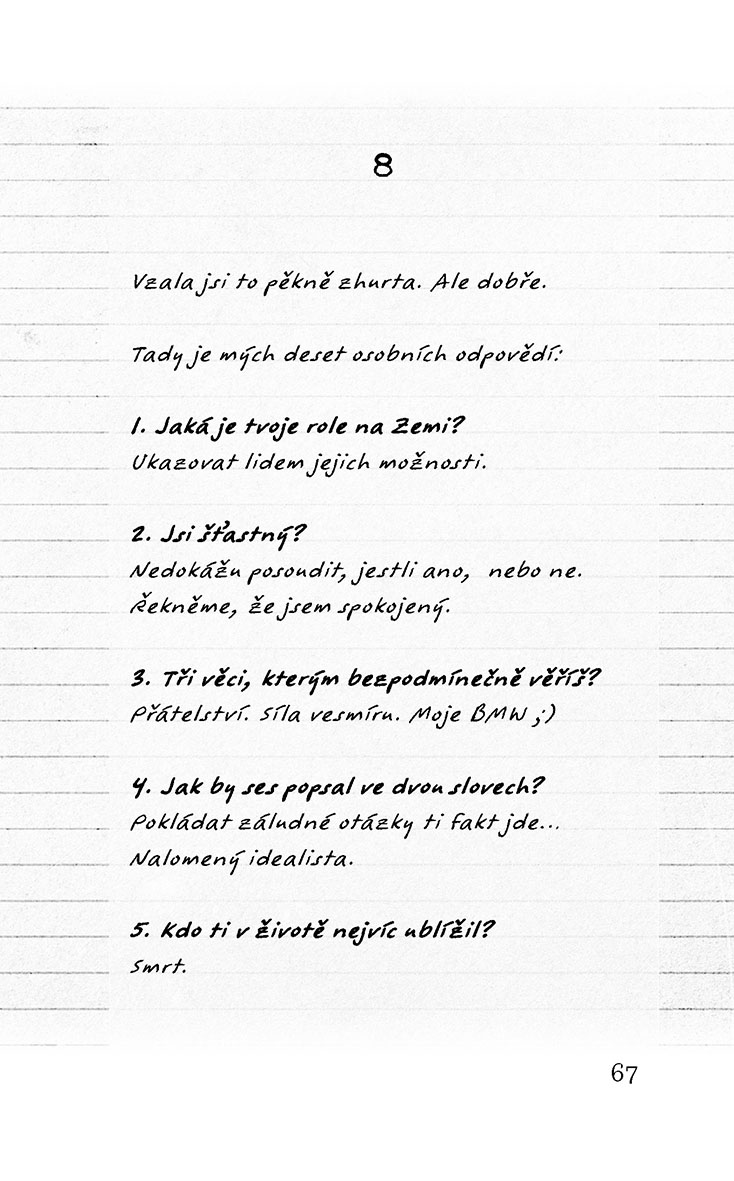 8
Vzala jsi to pěkně zhurta. Ale dobře.
Tady je mých deset osobních odpovědí:
1. Jaká je tvoje role na Zemi?
Ukazovat lidem jejich možnosti.
2. Jsi šťastný?
Nedokážu posoudit, jestli ano, nebo ne.
Řekněme, že jsem spokojený.
3. Tři věci, kterým bezpodmínečně věříš?
Přátelství. Síla vesmíru. Moje BMW ;)
4. Jak by ses popsal ve dvou slovech?
Pokládat záludné otázky ti fakt jde...
Nalomený idealista.
5. Kdo ti v životě nejvíc ublížil?
Smrt.
67